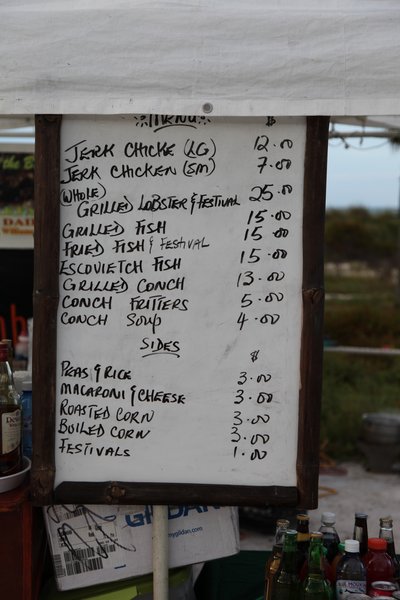 MENU $
JERK CHICKE (LG) 12.00
JERK CHICKEN (SM) 7.00
(WHOLE)
GRILLED LOBSTER & FESTIVAL 25.00
GRILLED FISH 15.00
FRIED FISH & FESTIVAL 15.00
ESCOVIETCH FISH 15.00
GRILLED CONCH 13.00
CONCH FRITTERS 5.00
CONCH SOUP 4.00
SIDES $
PEAS & RICE 3.00
MACARONI & CHEESE 3.00
ROASTED CORN 3.00
BOILED CORN 3.00
FESTIVALS 1.00
GILDAN
mygildan.com